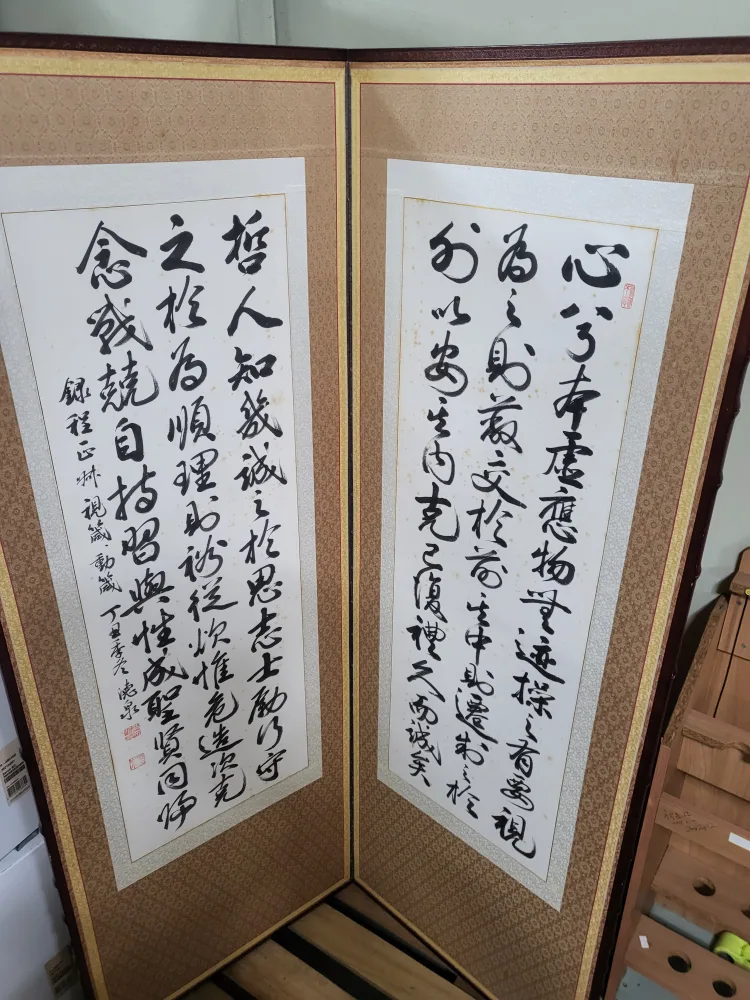 心兮本虛應物無迹操之有要視
為之則蔽交於前其中則遷制之於
外以安其內克己復禮久而誠矣
哲人知幾誠之於思志士勵行守
之於為順理則裕從欲惟危造次克
念戰兢自持習與性成聖賢同歸
錄程正叔視箴動箴 丁丑季冬 德泉